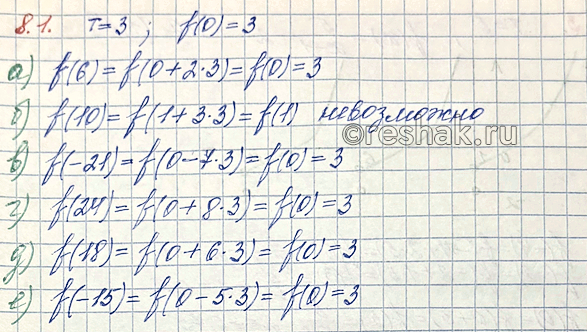 8.1. T=3 ; f(0)=3
а) f(6)=f(0+2·3)=f(0)=3
б) f(10)=f(1+3·3)=f(1) невозможно
©reshak.ru
в) f(-21)=f(0-7·3)=f(0)=3
г) f(24)=f(0+8·3)=f(0)=3
д) f(18)=f(0+6·3)=f(0)=3
е) f(-15)=f(0-5·3)=f(0)=3